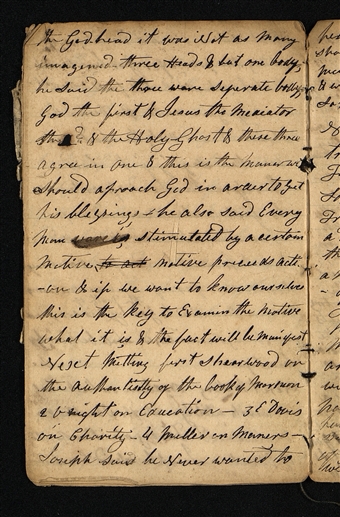 the Godhead it was Not as many
imagined three Heads & but one body,
he said the three were seperate bodys
God the first & Jesus the Mediator
the 2d & the Holy Ghost & these three
agree in one & this is the maner we
should aproach God in order to get
his blessings he also said Every
man were is stimulated by a certain
motive to act motive preceeds acti
-on & if we want to know ourselves
this is the key to Examin the motive
what it is & the fact will be manifest
Nexct Mitting first Shearwood on
the authenticity of the book of Mormon
2 on Education - 3 E Davis
on Charity - 4 Miller on Maners -
Joseph said he Never wanted to